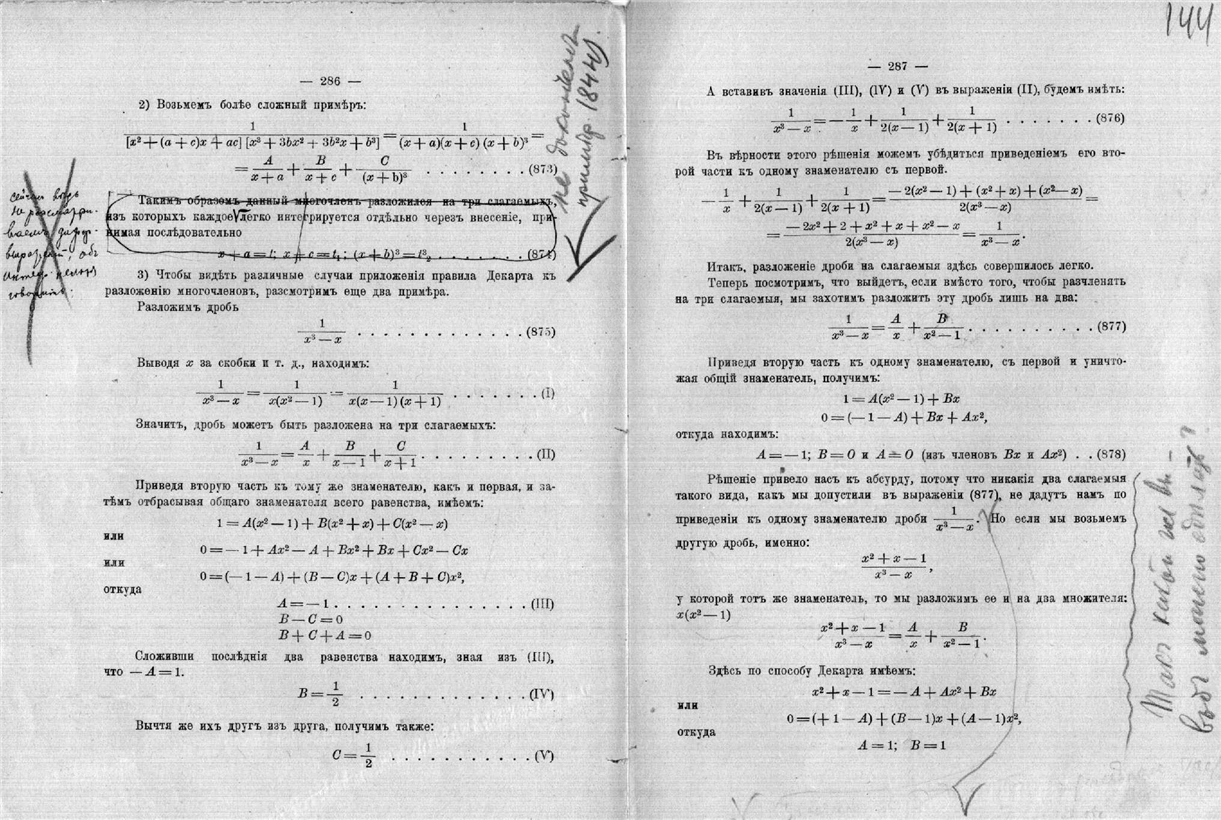 — 286 —
2) Возьмемъ болѣе сложный примѣръ:
1/([x² + (a + c)x + ac] [x³ + 3bx² + 3b²x + b³]) = 1/((x + a)(x + c) (x + b)³) =
= A/(x + a) + B/(x + c) + C/(x + b)³ . . . . . . . . (873)
не доконченъ
примѣр. (844).
Такимъ образомъ данный многочленъ разложился на три слагаемыхъ,
изъ которыхъ каждое легко интегрируется отдѣльно черезъ внесеніе, при-
нимая послѣдовательно
3) Чтобы видѣть различные случаи приложенія правила Декарта къ
разложенію многочленовъ, разсмотримъ еще два примѣра.
Разложимъ дробь
1/(x³ — x) . . . . . . . . . . . . . . . (875)
Выводя x за скобки и т. д., находимъ:
1/(x³ — x) = 1/(x(x² — 1)) = 1/(x(x — 1) (x + 1)) . . . . . . . (I)
Значитъ, дробь можетъ быть разложена на три слагаемыхъ:
1/(x³ — x) = A/x + B/(x — 1) + C/(x + 1) . . . . . . . . . . (II)
Приведя вторую часть къ тому же знаменателю, какъ и первая, и за-
тѣмъ отбрасывая общаго знаменателя всего равенства, имѣемъ:
1 = A(x² — 1) + B(x² + x) + C(x² — x)
или
0 = — 1 + Ax² — A + Bx² + Bx + Cx² — Cx
или
0 = (— 1 — A) + (B — C)x + (A + B + C)x²,
откуда
A = — 1 . . . . . . . . . . . . . . . . (III)
B — C = 0
B + C + A = 0
Сложивши послѣднія два равенства находимъ, зная изъ (III),
что — A = 1.
B = 1/2 . . . . . . . . . . . . . (IV)
Вычтя же ихъ другъ изъ друга, получимъ также:
C = 1/2 . . . . . . . . . . . (V)
144
— 287 —
А вставивъ значенія (III), (IV) и (V) въ выраженіи (II), будемъ имѣть:
1/(x³ — x) = — 1/x + 1/(2(x — 1)) + 1/(2(x + 1)) . . . . . . . . (876)
Въ вѣрности этого рѣшенія можемъ убѣдиться приведеніемъ его вто-
рой части къ одному знаменателю съ первой.
— 1/x + 1/(2(x — 1)) + 1/(2(x + 1)) = (— 2(x² — 1) + (x² + x) + (x² — x))/(2(x³ — x)) =
= (— 2x² + 2 + x² + x + x² — x)/(2(x³ — x)) = 1/(x³ — x).
Итакъ, разложеніе дроби на слагаемыя здѣсь совершилось легко.
Теперь посмотримъ, что выйдетъ, если вмѣсто того, чтобы разчленять
на три слагаемыя, мы захотимъ разложить эту дробь лишь на два:
1/(x³ — x) = A/x + B/(x² — 1) . . . . . . . . . . (877)
Приведя вторую часть къ одному знаменателю, съ первой и уничто-
жая общій знаменатель, получимъ:
1 = A(x² — 1) + Bx
0 = (— 1 — A) + Bx + Ax²,
откуда находимъ:
A = — 1; B = 0 и A = 0 (изъ членовъ Bx и Ax²) . . (878)
Рѣшеніе привело насъ къ абсурду, потому что никакія два слагаемыя
такого вида, какъ мы допустили въ выраженіи (877), не дадутъ намъ по
приведеніи къ одному знаменателю дроби 1/(x³ — x). Но если мы возьмемъ
другую дробь, именно:
(x² + x — 1)/(x³ — x),
у которой тотъ же знаменатель, то мы разложимъ ее и на два множителя:
x(x² — 1)
(x² + x — 1)/(x³ — x) = A/x + B/(x² — 1).
Здѣсь по способу Декарта имѣемъ:
x² + x — 1 = — A + Ax² + Bx
или
0 = (+ 1 — A) + (B — 1)x + (A — 1)x²,
откуда
A = 1; B = 1